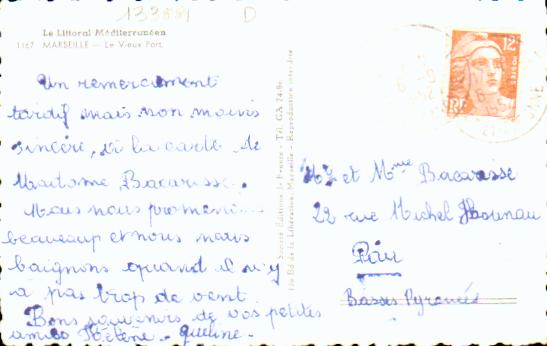 133881 D
Le Littoral Méditerranéen
1167 MARSEILLE — Le Vieux Port.
Un remerciement
tardif mais non moins
sincère, de la carte de
Madame Bacarisse.
Nous nous promenons
beaucoup et nous nous
baignons quand il n'y
a pas trop de vent.
Bons souvenirs de vos petites
amies Hélène
Société Éditions de France - Tél. GA 74-86
Bd de la Libération, Marseille - Reproduction interdite
12F
POSTES
RF
Mr et Mme Bacarisse
22 rue Michel
Pau
Basses Pyrenées